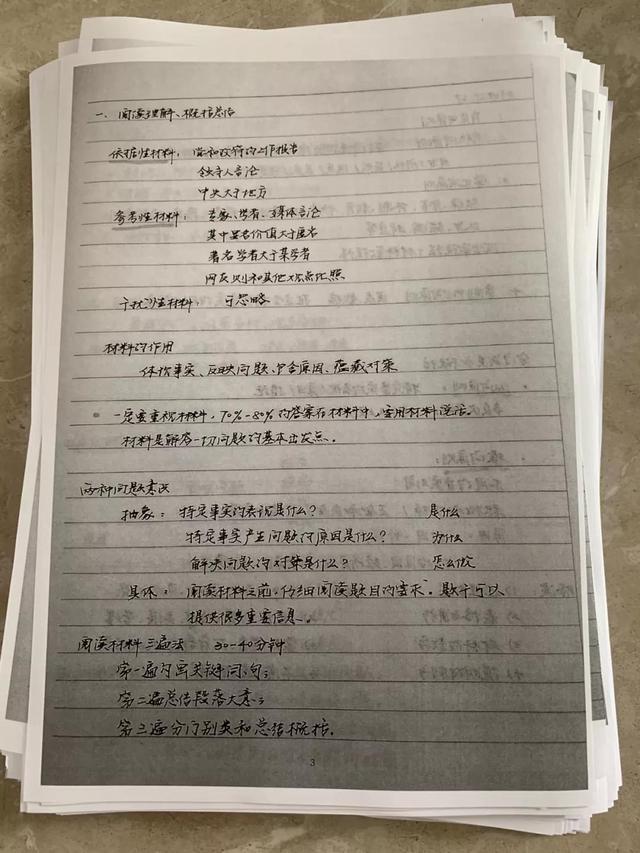 一. 阅读理解、概括总结
依据性材料：党和政府的工作报告
领导人言论
中央大于地方
参考性材料：专家、学者、媒体言论
其中显名价值大于匿名
著名学者大于某学者
网友则和其他观点比照
干扰性材料：可忽略
材料的作用
体现事实、反映问题、包含原因、蕴藏对策
一定要重视材料，70%-80%的答案在材料中，要用材料说话。
材料是解答一切问题的基本出发点。
两种问题意识
抽象：特定事实的表现是什么？ 是什么
特定事实产生问题的原因是什么？ 为什么
解决问题的对策是什么？ 怎么做
具体：阅读材料之前，仔细阅读题目的要求。题干可以
提供很多重要信息。
阅读材料三遍法 30-40分钟
第一遍勾画关键词、句；
第二遍总结段落大意；
第三遍分门别类和总结概括.
3